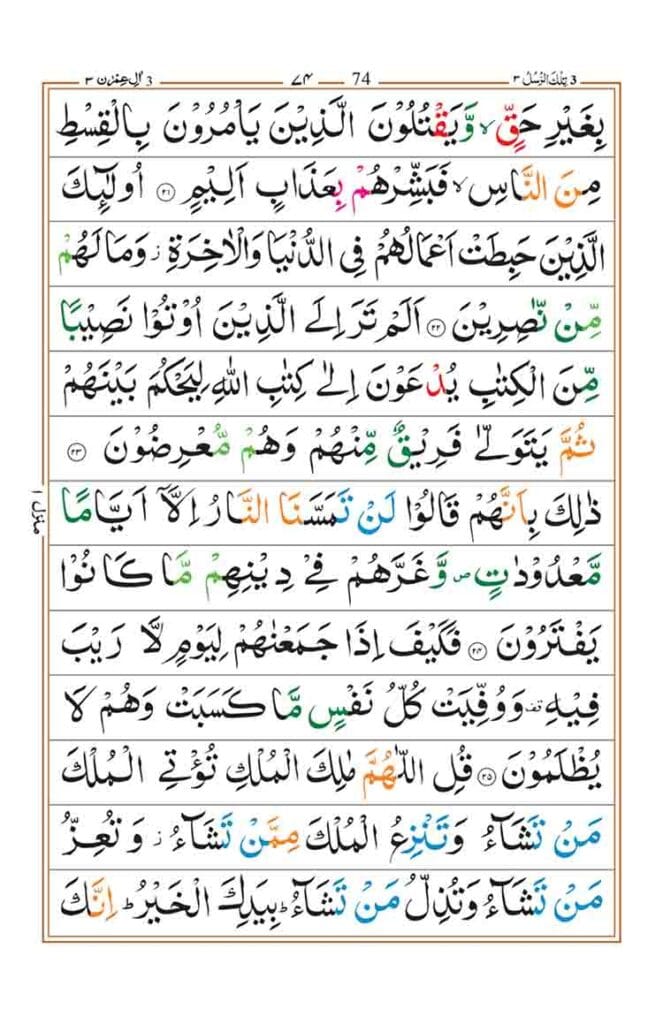 3 تِلْكَ الرُّسُلُ ٣
74 ٧٤
3 اٰلِ عِمْرٰن ٣
بِغَيْرِ حَقٍّ ۙ وَّيَقْتُلُوْنَ الَّذِيْنَ يَاْمُرُوْنَ بِالْقِسْطِ
مِنَ النَّاسِ ۙ فَبَشِّرْهُمْ بِعَذَابٍ اَلِيْمٍ ﴿۲۱﴾ اُولٰٓئِكَ
الَّذِيْنَ حَبِطَتْ اَعْمَالُهُمْ فِى الدُّنْيَا وَالْاٰخِرَةِ ؗ وَمَا لَهُمْ
مِّنْ نّٰصِرِيْنَ ﴿۲۲﴾ اَلَمْ تَرَ اِلَى الَّذِيْنَ اُوْتُوْا نَصِيْبًا
مِّنَ الْكِتٰبِ يُدْعَوْنَ اِلٰى كِتٰبِ اللّٰهِ لِيَحْكُمَ بَيْنَهُمْ
ثُمَّ يَتَوَلّٰى فَرِيْقٌ مِّنْهُمْ وَهُمْ مُّعْرِضُوْنَ ﴿۲۳﴾
ذٰلِكَ بِاَنَّهُمْ قَالُوْا لَنْ تَمَسَّنَا النَّارُ اِلَّاۤ اَيَّامًا
مَّعْدُوْدٰتٍ ۪ وَّغَرَّهُمْ فِىْ دِيْنِهِمْ مَّا كَانُوْا
يَفْتَرُوْنَ ﴿۲۴﴾ فَكَيْفَ اِذَا جَمَعْنٰهُمْ لِيَوْمٍ لَّا رَيْبَ
فِيْهِ ۟ وَوُفِّيَتْ كُلُّ نَفْسٍ مَّا كَسَبَتْ وَهُمْ لَا
يُظْلَمُوْنَ ﴿۲۵﴾ قُلِ اللّٰهُمَّ مٰلِكَ الْمُلْكِ تُؤْتِى الْمُلْكَ
مَنْ تَشَآءُ وَتَنْزِعُ الْمُلْكَ مِمَّنْ تَشَآءُ ؗ وَتُعِزُّ
مَنْ تَشَآءُ وَتُذِلُّ مَنْ تَشَآءُ ؕ بِيَدِكَ الْخَيْرُ ؕ اِنَّكَ
منزل ١